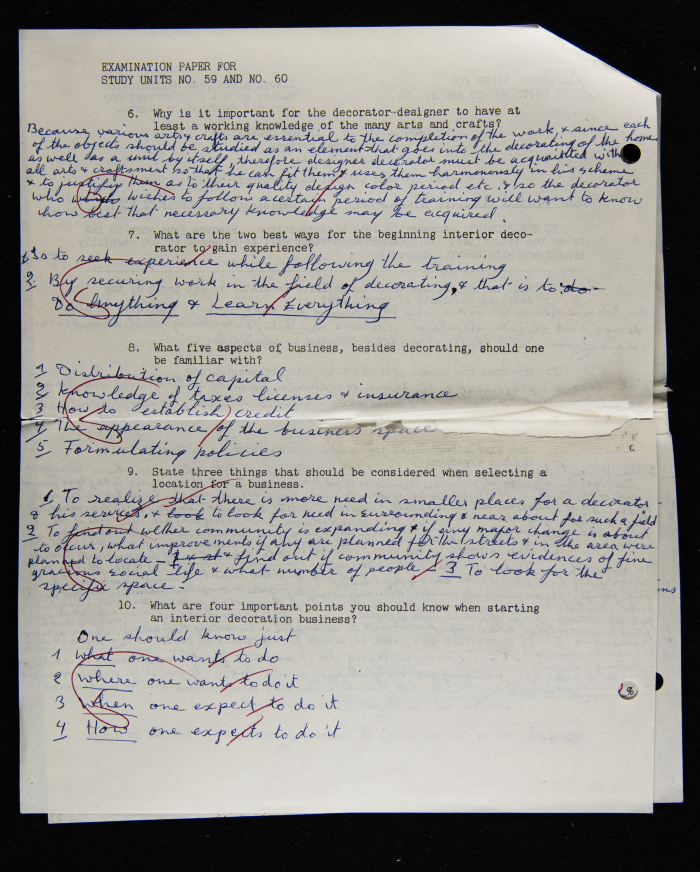 EXAMINATION PAPER FOR
STUDY UNITS NO. 59 AND NO. 60
6. Why is it important for the decorator-designer to have at
least a working knowledge of the many arts and crafts?
Because various arts & crafts are essential to the completion of the work, & since each
of the objects should be studied as an element that goes into the decorating of the home
as well as a unit by itself, therefore designer decorator must be acquainted with
all arts & craftsment so that he can fit them & uses them harmonously in his scheme
& to justify them as to their quality design color period etc. & so the decorator
who which wishes to follow a certain period of training will want to know
how best that necessary knowledge may be acquired.
7. What are the two best ways for the beginning interior deco-
rator to gain experience?
1 Is to seek experience while following the training
2. By securing work in the field of decorating, & that is to do
Do Anything & Learn Everything
8. What five aspects of business, besides decorating, should one
be familiar with?
1 Distribution of capital
2 Knowledge of taxes licenses & insurance
3 How to establish credit
4 The appearance of the business space
5 Formulating policies
9. State three things that should be considered when selecting a
location for a business.
1 To realize that there is more need in smaller places for a decorator
& his services, & look to look for need in surrounding & near about for such a field
2 To find out wether community is expanding & if any major change is about
to occur, what improvements if any are planned for the streets & in the area were
planned to locate - & find out if community shows evidences of fine
gracious social life & what number of people - 3 To look for the
specific space -
10. What are four important points you should know when starting
an interior decoration business?
One should know just
1 What one wants to do
2 Where one wants to do it
3 When one expect to do it
4 How one expects to do it